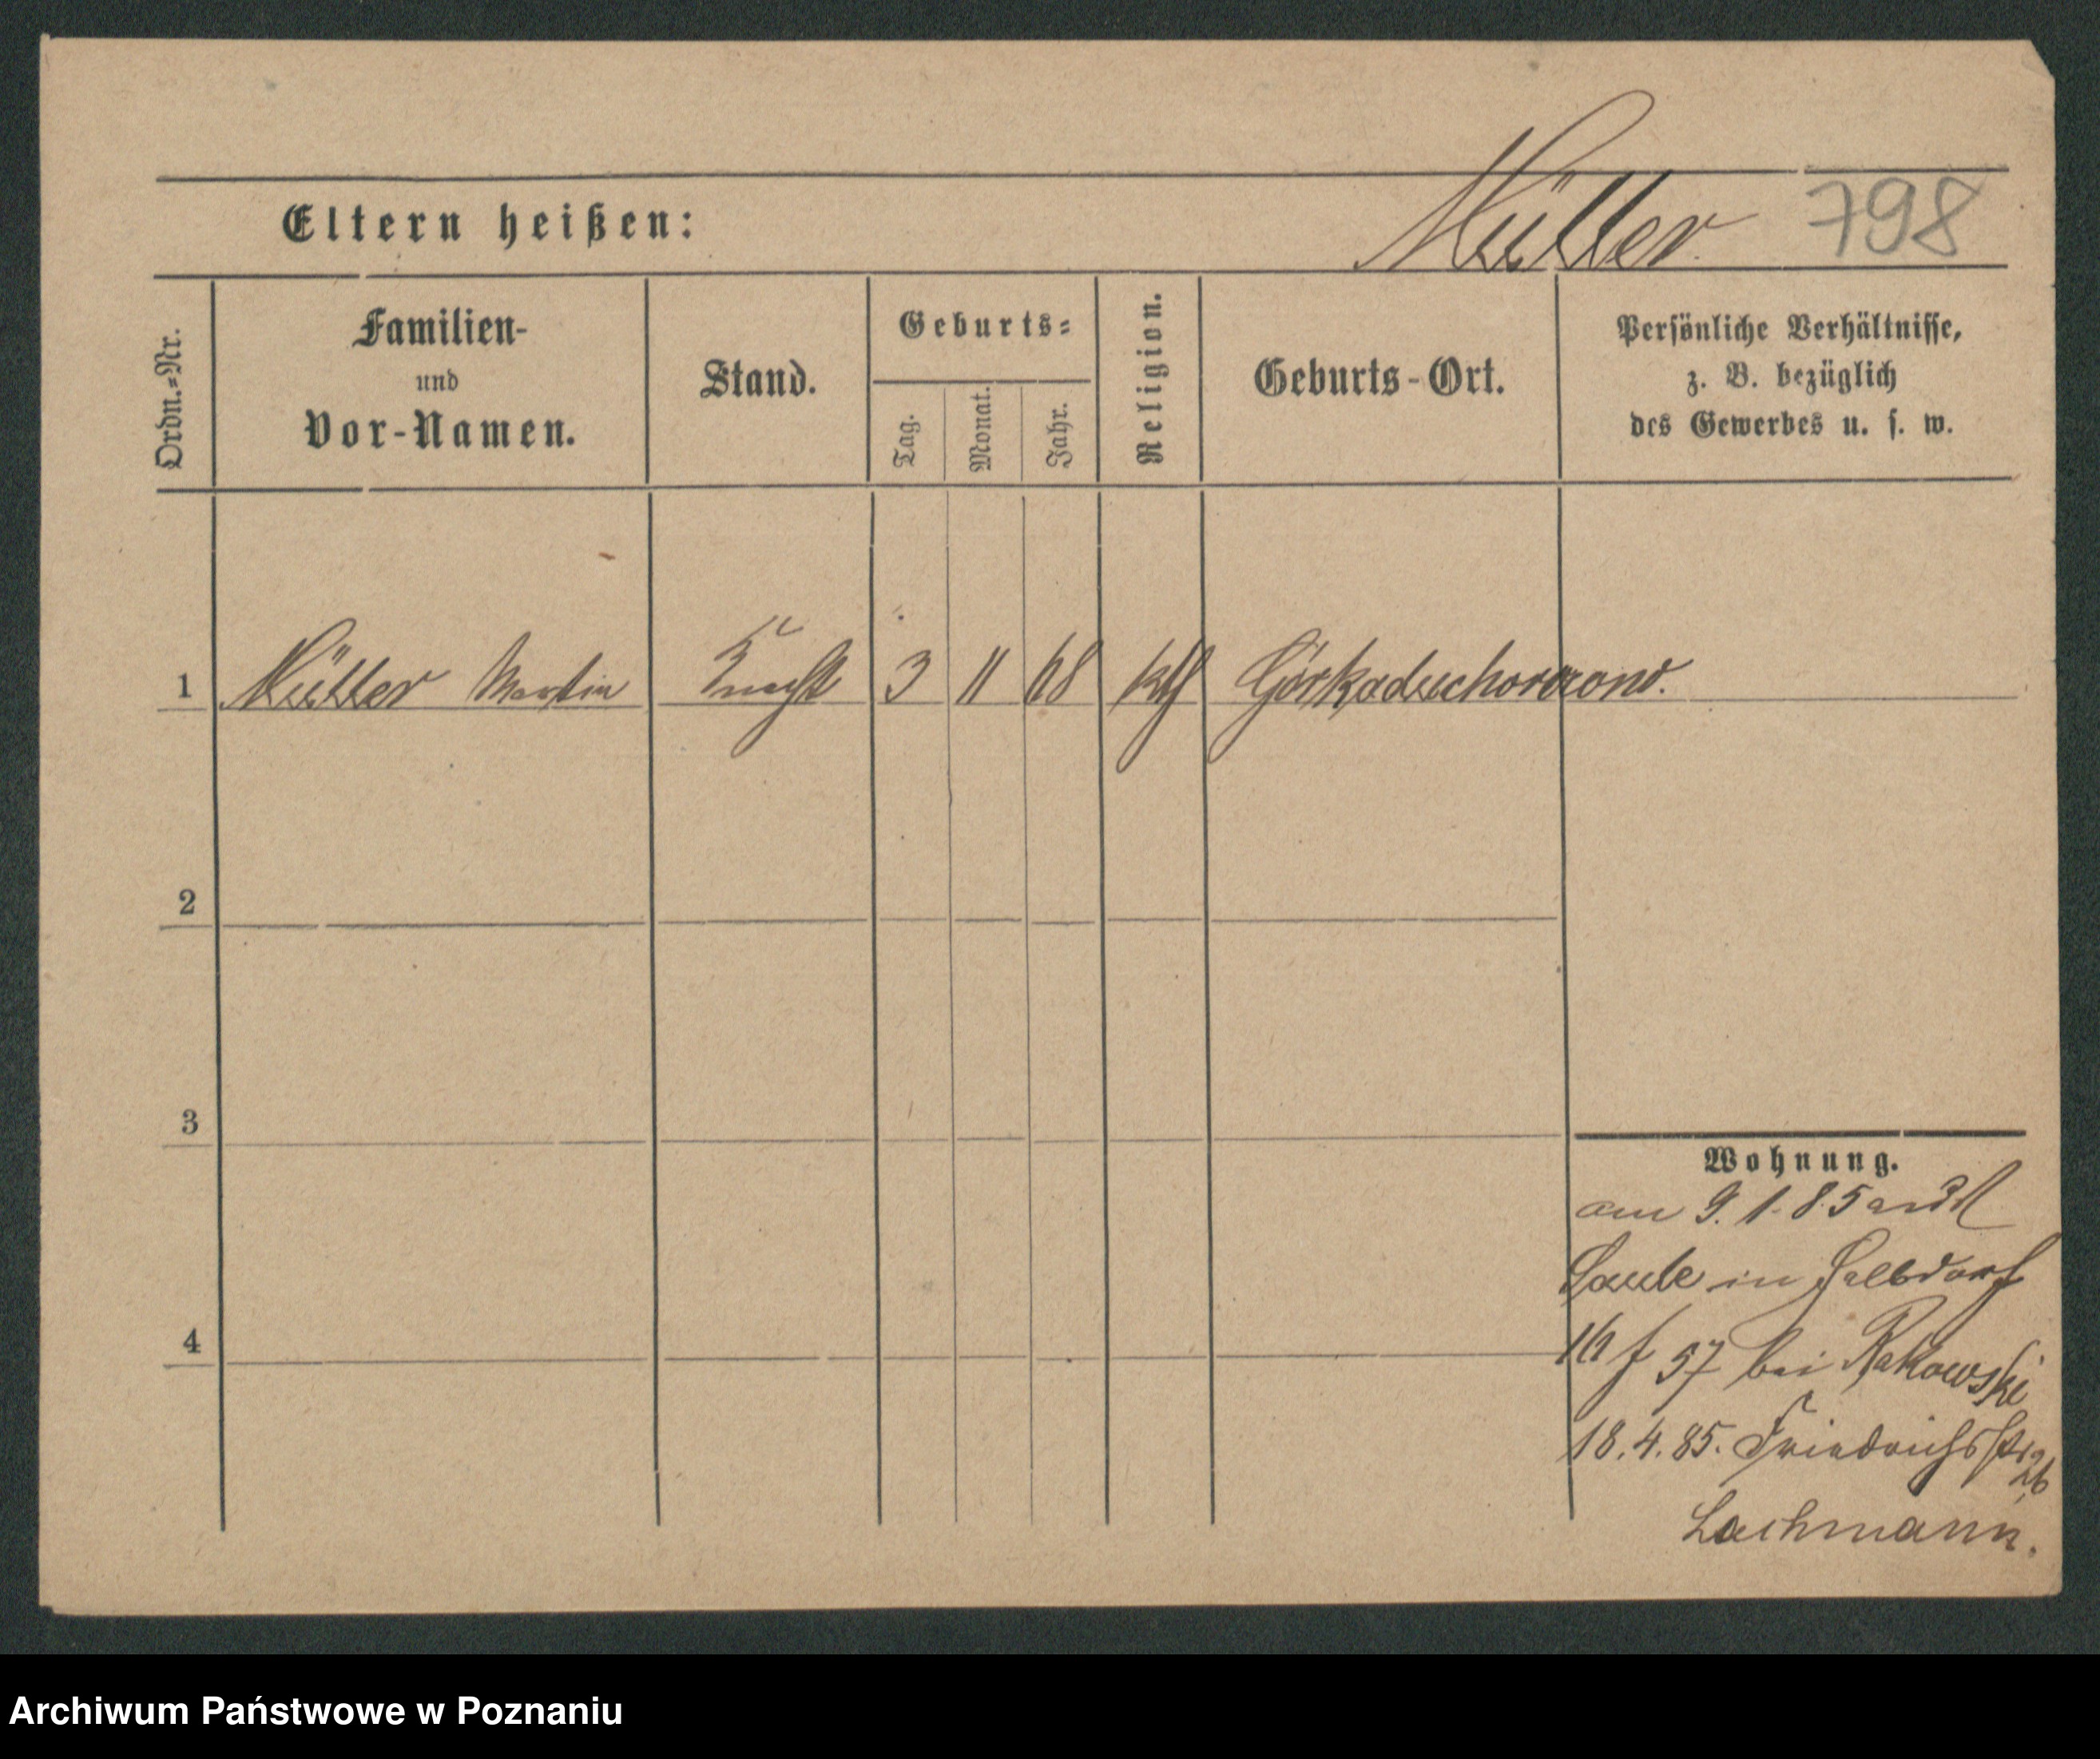 Müller. 798
Eltern heißen:
Ordn.=Nr.
Familien-
und
Vor-Namen.
Stand.
Geburts=
Tag.
Monat.
Jahr.
Religion.
Geburts-Ort.
Persönliche Verhältnisse,
z. B. bezüglich
des Gewerbes u. s. w.
1 Müller Martin Knecht 3 11 68 kth
2
3
4
Wohnung.
am 9. 1. 85
in
57 bei Rakowski
18. 4. 85. Friedrichsstr
Lachmann.
Archiwum Państwowe w Poznaniu